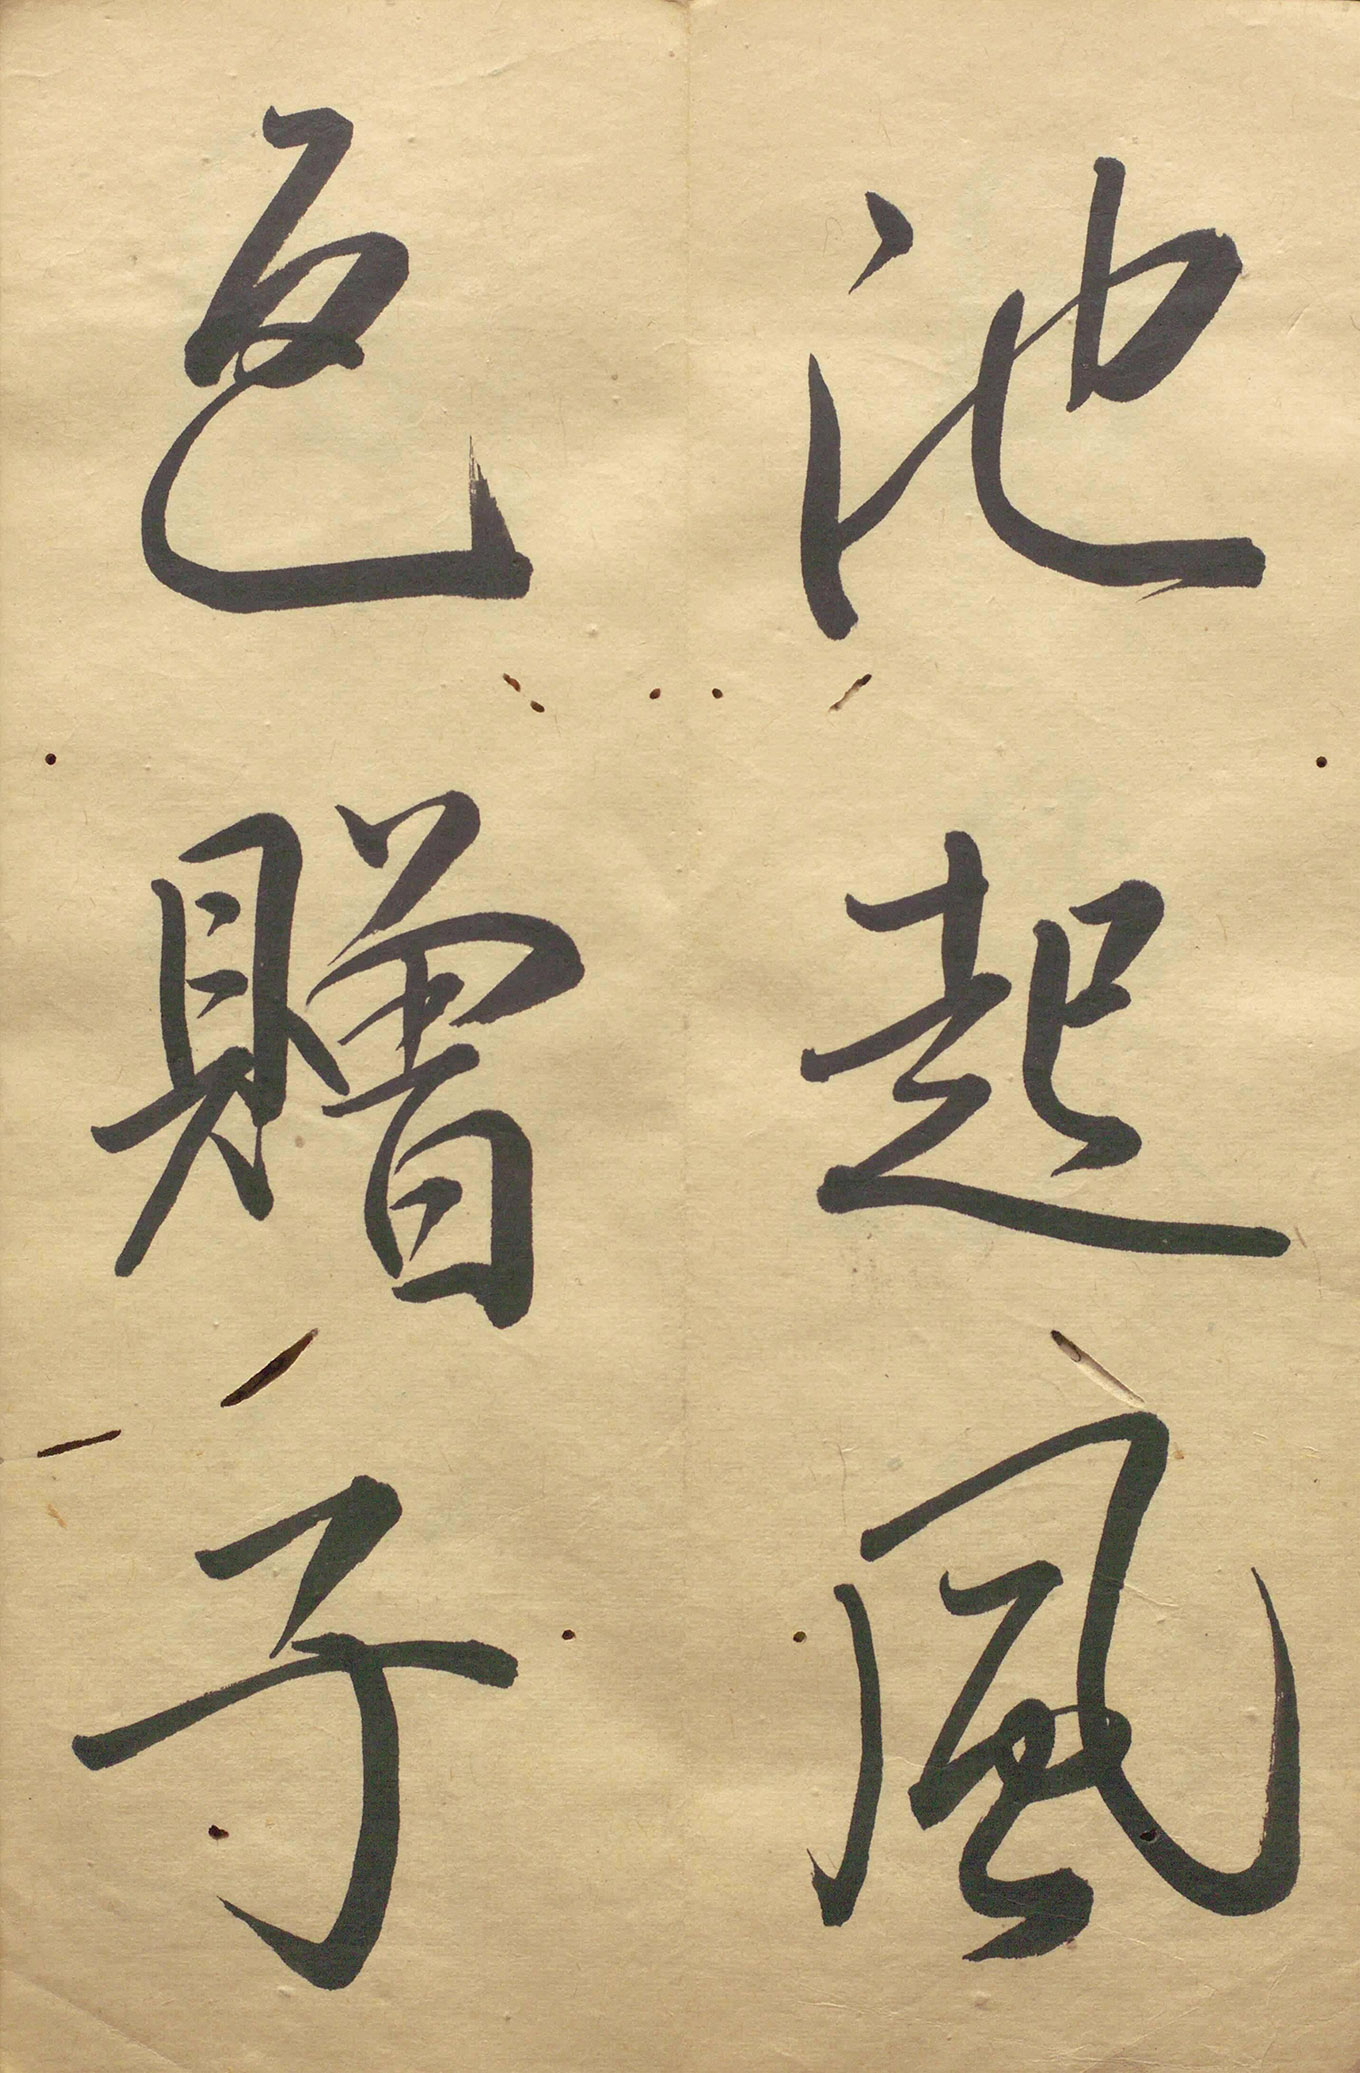 池起風
色贈子